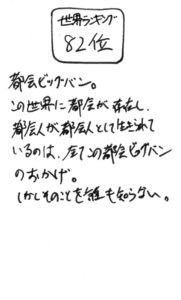 世界ランキング
82位
都会ビッグバン。
この世界に都会が存在し、
都会人が都会人として生きれて
いるのは、全てこの都会ビッグバン
のおかげ。
しかしそのことを誰も知らない。